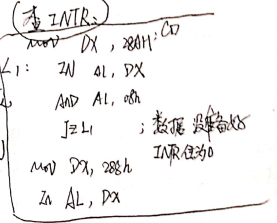 查INTR:
MOV DX, 28AH; CD
L1: IN AL, DX
AND AL, 08h
JZ L1 ; 数据没准备好
INTR位为0
MOV DX, 288h
In AL, DX